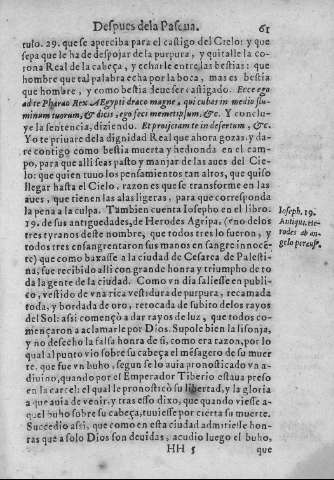 Despues dela Pascua. 61
tulo. 29. que se aperciba para el castigo del Cielo: y que
sepa que le ha de despojar de la purpura, y quitalle la co
rona Real de la cabeça, y echarle entre las bestias: que
hombre que tal palabra echa por la boca, mas es bestia
que hombre, y como bestia deue ser castigado. Ecce ego
ad te Pharao Rex AEgypti draco magne, qui cubas in medio flu
minum tuorum, & dicis, ego feci memetipsum, &c. Y conclu-
ye la sentencia, diziendo. Et proijciam te in desertum, &c.
Yo te priuare de la dignidad Real que ahora gozas, y da-
re contigo como bestia muerta y hedionda en el cam-
po, para que alli seas pasto y manjar de las aues del Cie-
lo: que quien tuuo los pensamientos tan altros, que quiso
llegar hasta el Cielo, razon es que se transforme en las
aues, que tienen las alas ligeras, para que corresponda
la pena a la culpa. Tambien cuenta Iosepho en el libro.
19. de sus antiguedades, de Herodes Agripa, (vno de los
tres tyranos deste nombre, que todos tres lo fueron, y
todos tres ensangrentaron sus manos en sangre innocē-
te) que como baxasse a la ciudad de Cesarea de Palesti-
na, fue recibido alli con grande honra y triumpho de to
da la gente de la ciudad. Como vn dia saliesse en publi-
co, vestido de vna rica vestidura de purpura, recamada
toda, y bordada de oro, retocada de subito de los rayos
del Sol: assi començò a dar rayos de luz, que todos co-
mençaron a aclamarle por Dios. Supole bien la lisonja,
y no desecho la falsa honra de si, como era razon, por lo
qual al punto vio sobre su cabeça el mẽsagero de su muer
te. que fue vn buho, segun se lo auia pronosticado vn a-
diuino, quando por el Emperador Tiberio estaua preso
en la carcel: el qual le pronosticò su libertad, y la gloria
a que auia de venir, y tras esso dixo, que quando viesse a-
quel buho sobre su cabeça, tuuiesse por cierta su muerte.
Succedio assi, que como en esta ciudad admitiesse hon-
ras que a solo Dios son deuidas, acudio luego el buho,
HH 5 que
Ioseph. 19.
Antiqua. He-
rodes ab an-
gelo percuss.